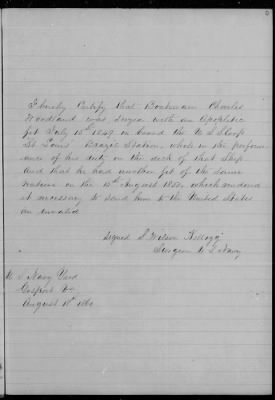 I hereby Certify that Boatswain Charles
Woodland was seized with an Apoplectic
fit July 15th 1849 on board the U S Sloop
St. Louis Brazil Station, while in the perform
ance of his duty on the deck of that Ship.
And that he had another fit of the same
nature on the 15th August 1850 which rendered
it necessary to send him to the United States
an invalid
Signed S. Wilson Kellogg
Surgeon U S Navy
U S Navy Yard
Gosport Va
August 18th